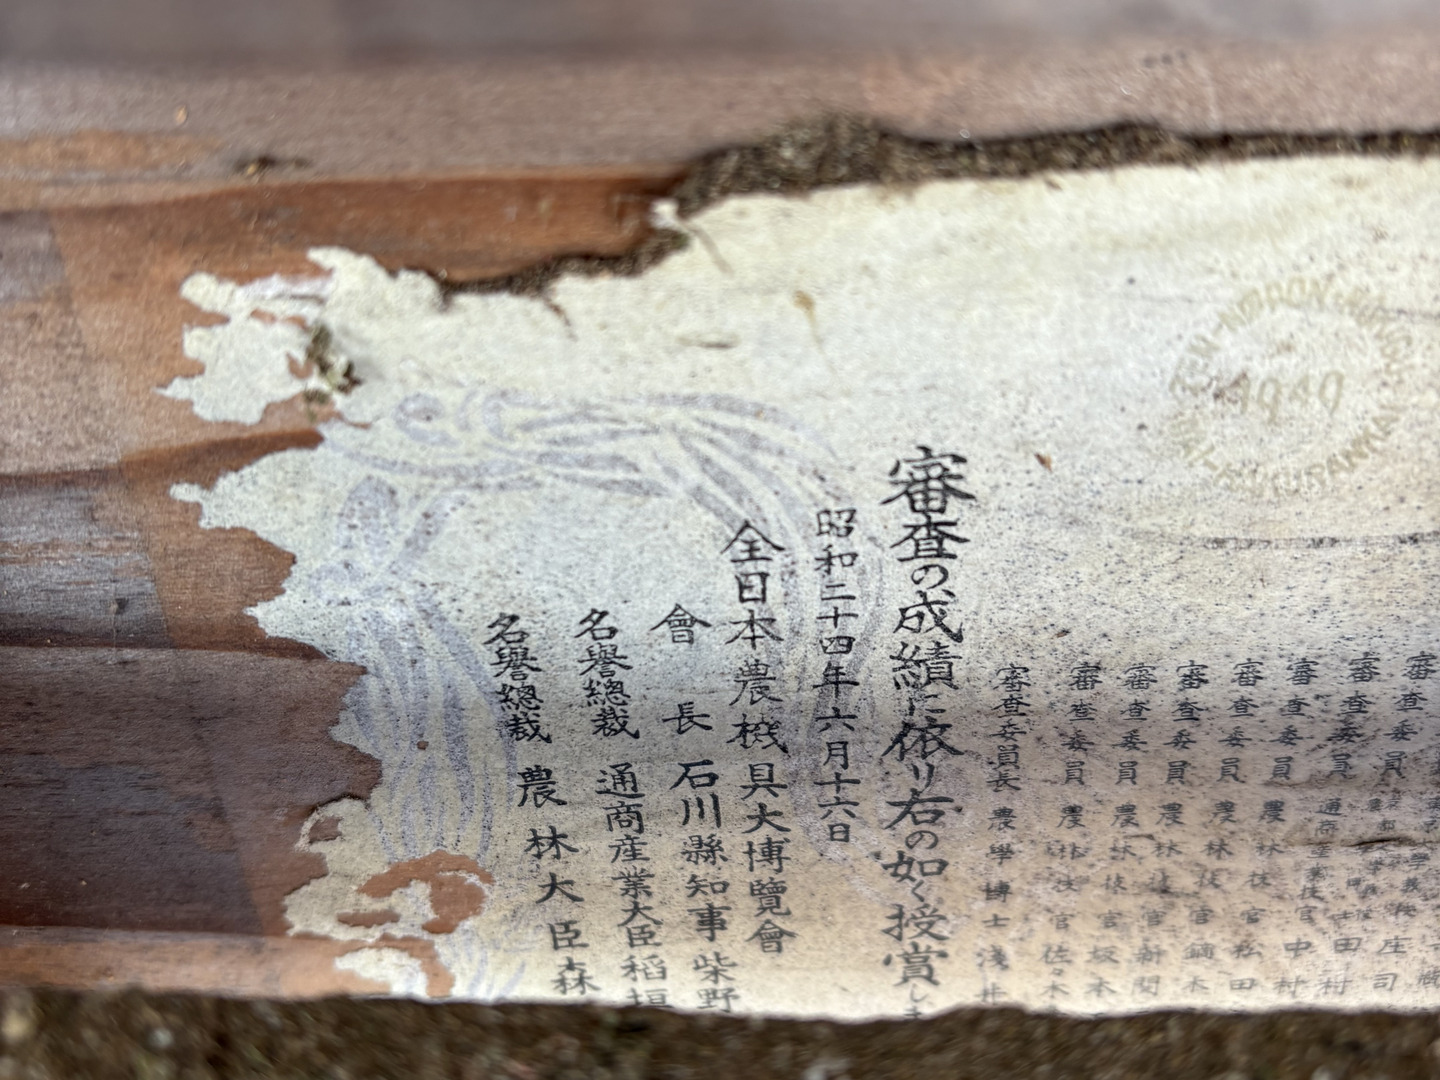 審査委員
審査委員
審査委員 中村
審査委員 農林技官 松田
審査委員 農林技官 鏑木
審査委員 農林技官 新関
審査委員 農林技官 坂本
審査委員 農林技官 佐々木
審査委員長 農學博士 浅井
審査の成績に依リ右の如く授賞しま
昭和二十四年六月十六日
全日本農機具大博覽會
會長 石川縣知事 柴野
名譽總裁 通商産業大臣 稻垣
名譽總裁 農林大臣 森
1949